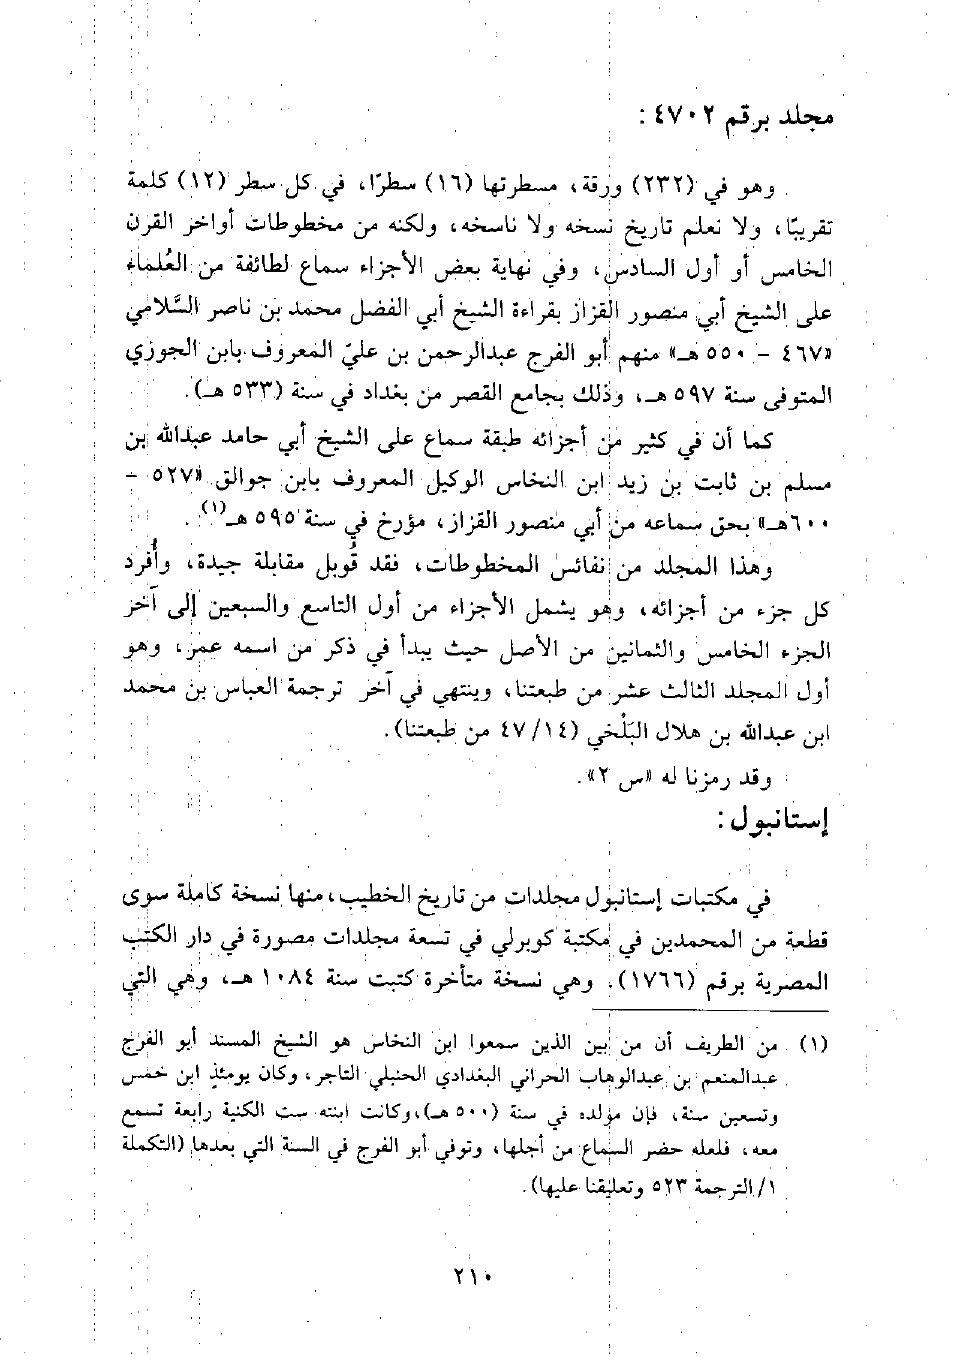 مجلد برقم ٤٧٠٢ :
وهو في (٢٣٢) ورقة، مسطرتها (١٦) سطرًا، في كل سطر (١٢) كلمة
تقريبًا، ولا نعلم تاريخ نسخه ولا ناسخه، ولكنه من مخطوطات أواخر القرن
الخامس أو أول السادس، وفي نهاية بعض الأجزاء سماع لطائفة من العُلماء
على الشيخ أبي منصور القزاز بقراءة الشيخ أبي الفضل محمد بن ناصر السَّلامي
«٤٦٧ - ٥٥٠ هـ» منهم أبو الفرج عبدالرحمن بن عليّ المعروف بابن الجوزي
المتوفى سنة ٥٩٧ هـ، وذلك بجامع القصر من بغداد في سنة (٥٣٣ هـ).
كما أن في كثير من أجزائه طبقة سماع على الشيخ أبي حامد عبدالله بن
مسلم بن ثابت بن زيد ابن النخاس الوكيل المعروف بابن جوالق «٥٢٧ -
٦٠٠هـ» بحق سماعه من أبي منصور القزاز، مؤرخ في سنة ٥٩٥ هـ(١).
وهذا المجلد من نفائس المخطوطات، فقد قُوبل مقابلة جيدة، وأُفرد
كل جزء من أجزائه، وهو يشمل الأجزاء من أول التاسع والسبعين إلى آخر
الجزء الخامس والثمانين من الأصل حيث يبدأ في ذكر من اسمه عمر، وهو
أول المجلد الثالث عشر من طبعتنا، وينتهي في آخر ترجمة العباس بن محمد
ابن عبدالله بن هلال البَلْخي (١٤/ ٤٧ من طبعتنا).
وقد رمزنا له «س ٢».
إستانبول :
في مكتبات إستانبول مجلدات من تاريخ الخطيب، منها نسخة كاملة سوى
قطعة من المحمدين في مكتبة كوبرلي في تسعة مجلدات مصورة في دار الكتب
المصرية برقم (١٧٦٦). وهي نسخة متأخرة كتبت سنة ١٠٨٤ هـ، وهي التي
(١) من الطريف أن من بين الذين سمعوا ابن النخاس هو الشيخ المسند أبو الفرج
عبدالمنعم بن عبدالوهاب الحراني البغدادي الحنبلي التاجر، وكان يومئذٍ ابن خمس
وتسعين سنة، فإن مولده في سنة (٥٠٠ هـ)، وكانت ابنته ست الكنية رابعة تسمع
معه، فلعله حضر السماع من أجلها، وتوفي أبو الفرج في السنة التي بعدها (التكملة
١/ الترجمة ٥٢٣ وتعليقنا عليها).
٢١٠